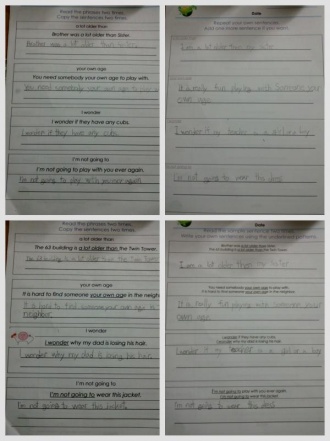 Read the phrases two times.
Copy the sentences two times.
a lot older than
Brother was a lot older than Sister.
Brother was a lot older than
your own age
You need somebody your own age to play with.
You need somebody your own age to play
I wonder
I wonder if they have any cubs.
I wonder if they have any cubs.
I'm not going to
I'm not going to play with you ever again.
I'm not going to play with you ever again.
Date
I am a lot older than
It is really fun playing with someone your
own age.
I wonder if my is a girl or a boy
I'm not going to wear this dress
Read the phrases two times.
Copy the sentences two times.
a lot older than
The 63 building is a lot older than the Twin Tower.
The 63 building is a lot older than the Twin Tower
your own age
It is hard to find someone your own age in the neigh
It is hard to find someone your own age
neighbor.
I wonder
I wonder why my dad is losing his hair.
I wonder why my dad is losing his hair.
I'm not going to
I'm not going to wear this jacket.
I'm not going to wear this jacket.
Date
Brother was a lot older than Sister.
The 63 building is a lot older than the Twin Tower.
I am a lot older than
You need somebody your own age to play with.
It is hard to find someone your own age in the neighbor
It is really fun playing with someone your
own age.
I wonder if they have any cubs.
I wonder why my dad is losing his hair.
I wonder if my is a girl or a boy
I'm not going to play with you ever again.
I'm not going to wear this jacket.
I'm not going to wear this dress